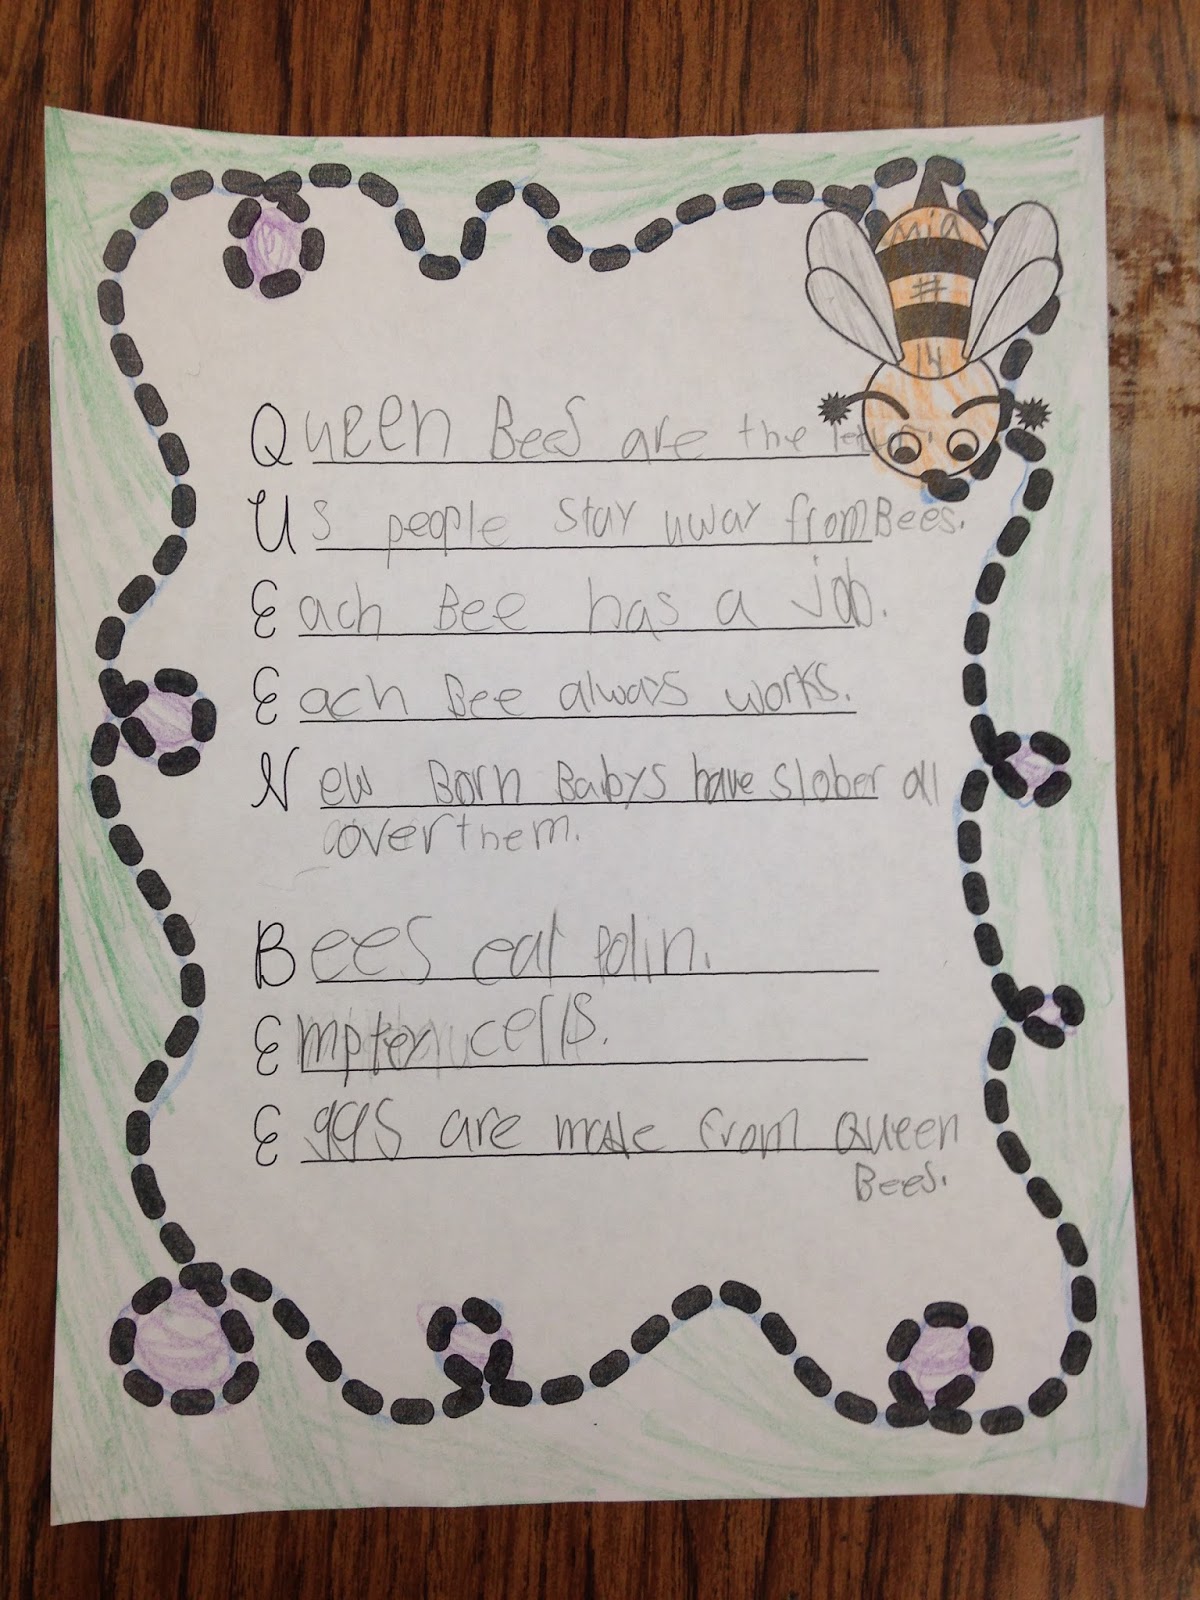 mia
#
14
Queen Bees are the
Us people stay uway from Bees.
Each Bee has a job.
Each Bee always works.
New Born Babys have slober all
over them.
Bees eat polin.
Emptey cells.
Eggs are made from Queen
Bees.